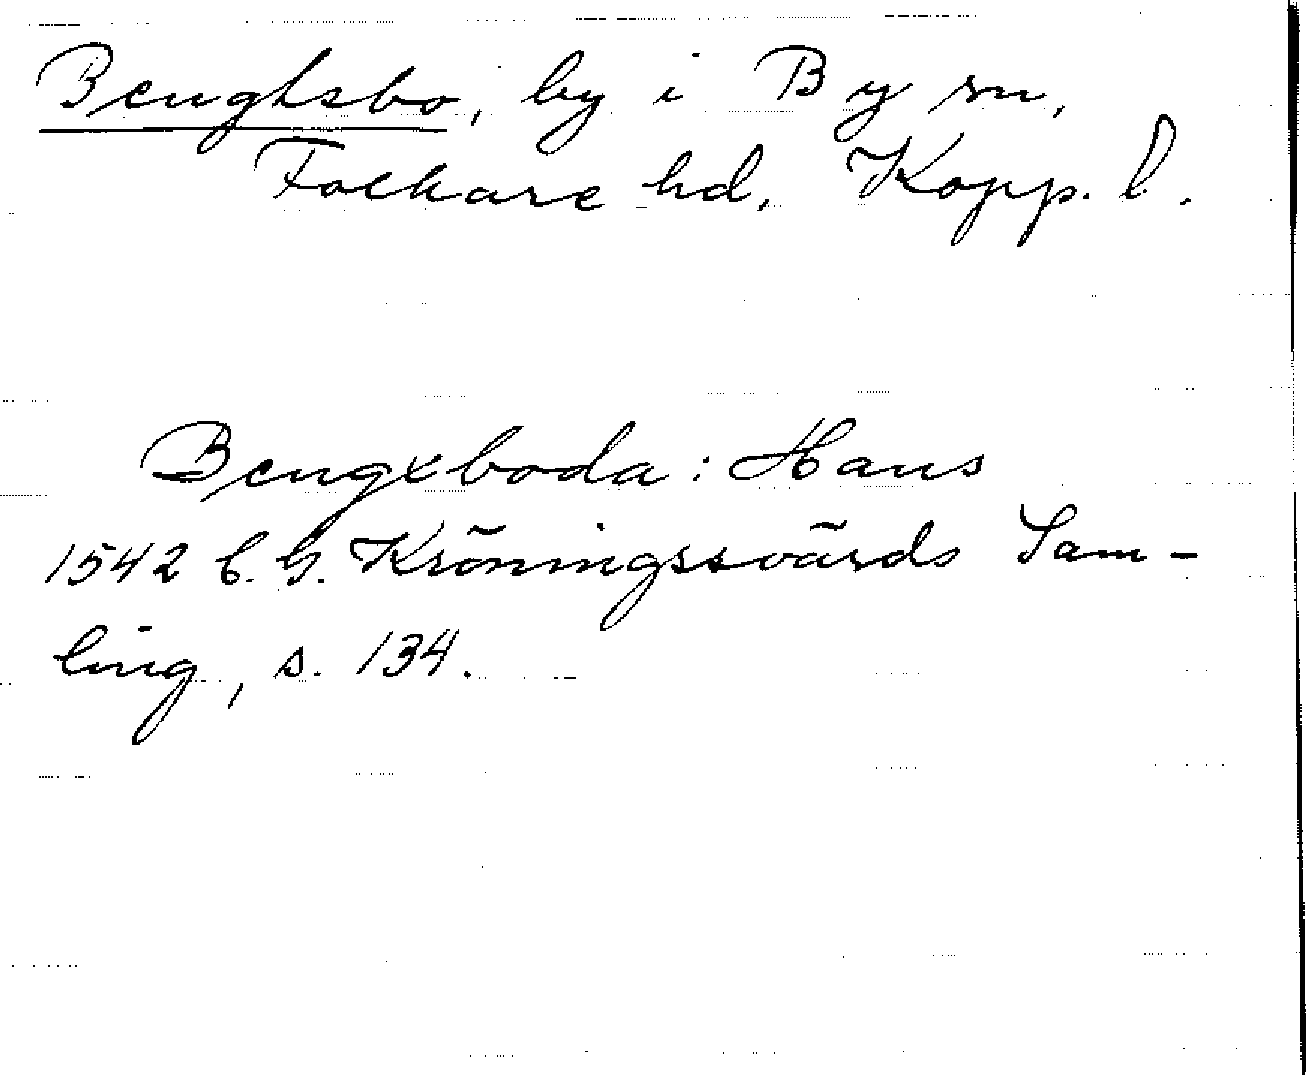 Benghtsbo, by i By sn,
Folkare hd, Kopp. l.
Bengxboda: Hans
1542 C. G. Kröningssvärds Sam-
ling, s. 134.